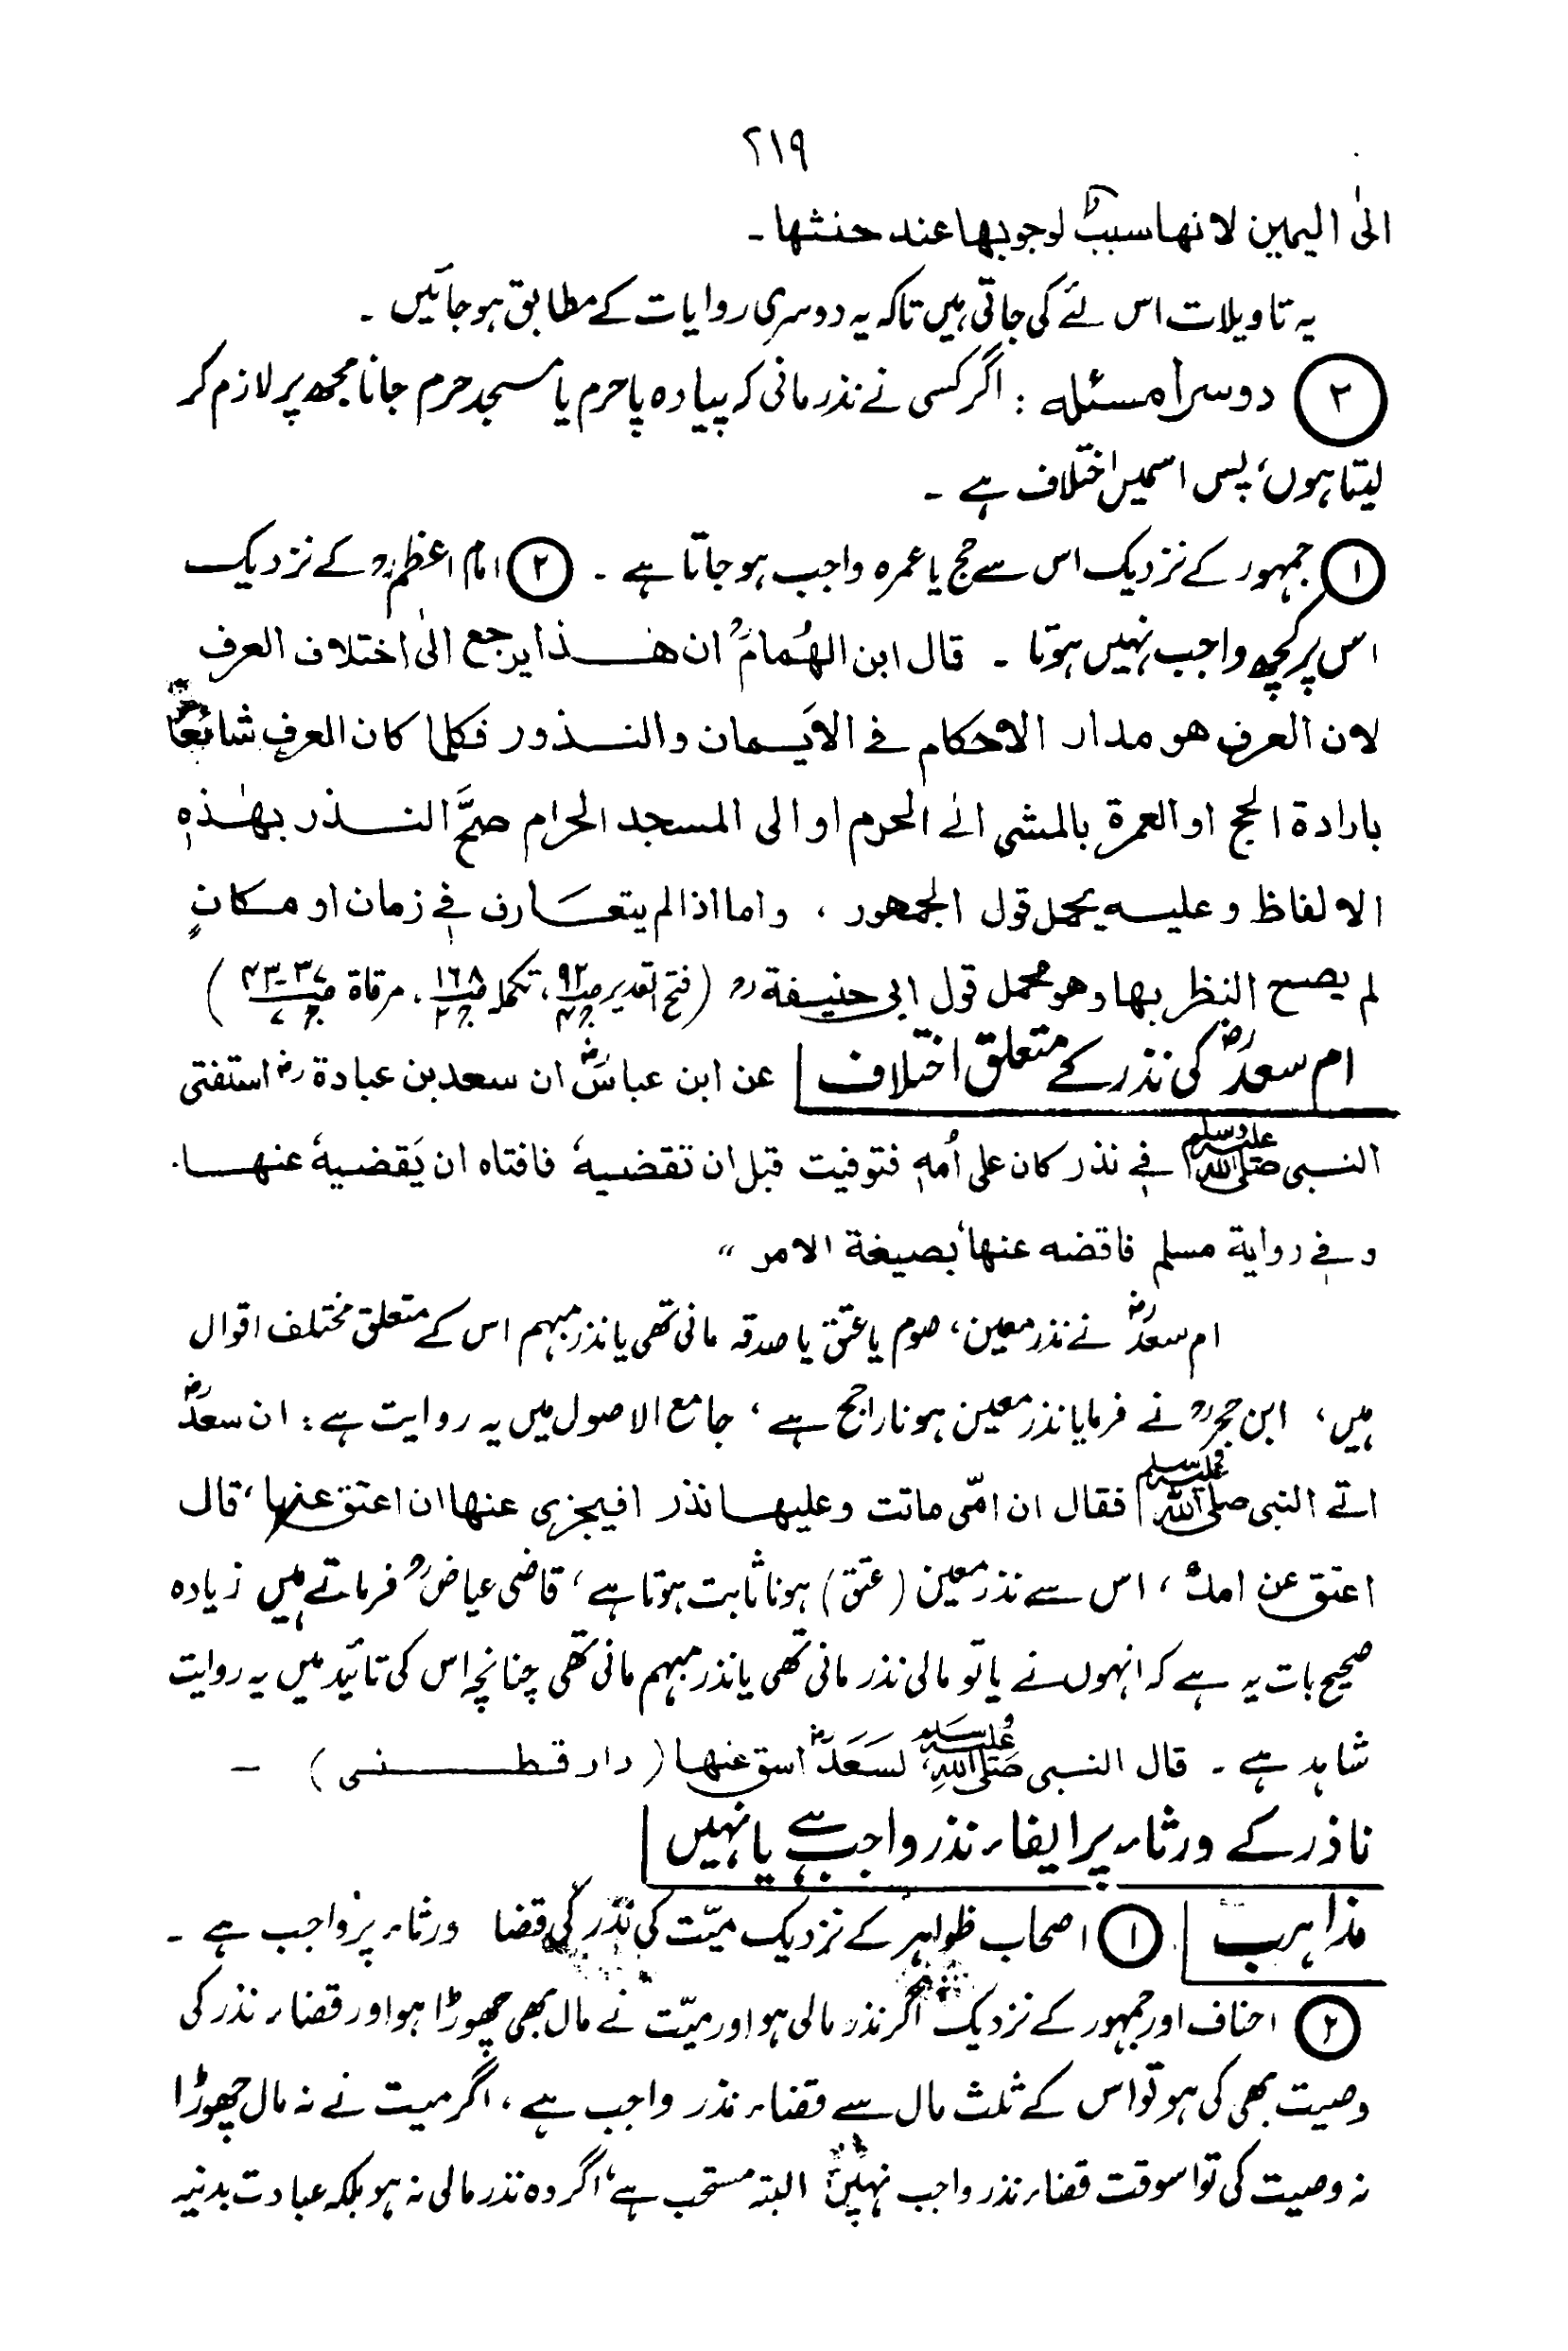 ۲۱۹
الیٰ الیمین لانھا سببٌ لوجوبھا عند حنثھا ـ
یہ تاویلات اس لئے کی جاتی ہیں تاکہ یہ دوسری روایات کے مطابق ہوجائیں ۔
۲ دوسرا مسئلہ : اگر کسی نے نذر مانی کہ پیادہ پا حرم یا مسجد حرم جانا مجھ پر لازم کر
لیتا ہوں، پس اسمیں اختلاف ہے ۔
۱ جمہور کے نزدیک اس سے حج یا عمرہ واجب ہوجاتا ہے ۔ ۲ امام اعظمؒ کے نزدیک
اس پر کچھ واجب نہیں ہوتا ۔ قال ابن الھُمامؒ ان ھٰذا یرجع الیٰ اختلاف العرف
لان العرف ھو مدار الاحکام فی الاَیمان والنذور فکلما کان العرف شائعًا
بارادۃ الحج او العمرۃ بالمشی الی الحرم او الی المسجد الحرام صحَّ النذر بھٰذہ
الالفاظ وعلیہ یحمل قول الجمھور ، واما اذا لم یتعَارف فی زمان او مکانٍ
لم یصح النظر بھا وھو محمل قول ابی حنیفۃؒ (فتح القدیر ص۹۲ ج۴، تکملہ ص۱۶۸ ج۲، مرقاۃ ص۳۷-۴۳ ج۷ )
ام سعدؓ کی نذر کے متعلق اختلاف عن ابن عباسؓ ان سعد بن عبادۃؓ استفتی
النبی صلی اللہ علیہ وسلم فی نذر کان علی اُمہ فتوفیت قبل ان تقضیہٗ فافتاہ ان یَقضیہٗ عنھا.
وفی روایۃ مسلم فاقضہ عنھا، بصیغۃ الامر "
ام سعدؓ نے نذر معین، صوم یا عتق یا صدقہ مانی تھی یا نذر مبہم اس کے متعلق مختلف اقوال
ہیں، ابن حجرؒ نے فرمایا نذر معین ہونا راجح ہے ، جامع الاصول میں یہ روایت ہے : ان سعدؓ
اتی النبی صلی اللہ علیہ وسلم فقال ان امّی ماتت وعلیھا نذر افیجزی عنھا ان اعتق عنہا ، قال
اعتق عن امك ، اس سے نذر معین (عتق) ہونا ثابت ہوتا ہے ، قاضی عیاضؒ فرماتے ہیں زیادہ
صحیح بات یہ ہے کہ انہوں نے یا تو مالی نذر مانی تھی یا نذر مبہم مانی تھی چنانچہ اس کی تائید میں یہ روایت
شاہد ہے ۔ قال النبی صلی اللہ علیہ وسلم لسَعَدؓ اسق عنھا ( دار قطنی ) ـ
ناذر کے ورثاء پر ایفاء نذر واجب ہے یا نہیں
مذاہب ۱ اصحاب ظواہر کے نزدیک میّت کی نذر کی قضا ورثاء پر واجب ہے ۔
۲ احناف اور جمہور کے نزدیک اگر نذر مالی ہو اور میّت نے مال بھی چھوڑا ہو اور قضاء نذر کی
وصیت بھی کی ہو تو اس کے ثلث مال سے قضاء نذر واجب ہے ، اگر میت نے نہ مال چھوڑا
نہ وصیت کی تو اسوقت قضاء نذر واجب نہیں البتہ مستحب ہے، اگر وہ نذر مالی نہ ہو بلکہ عبادت بدنیہ